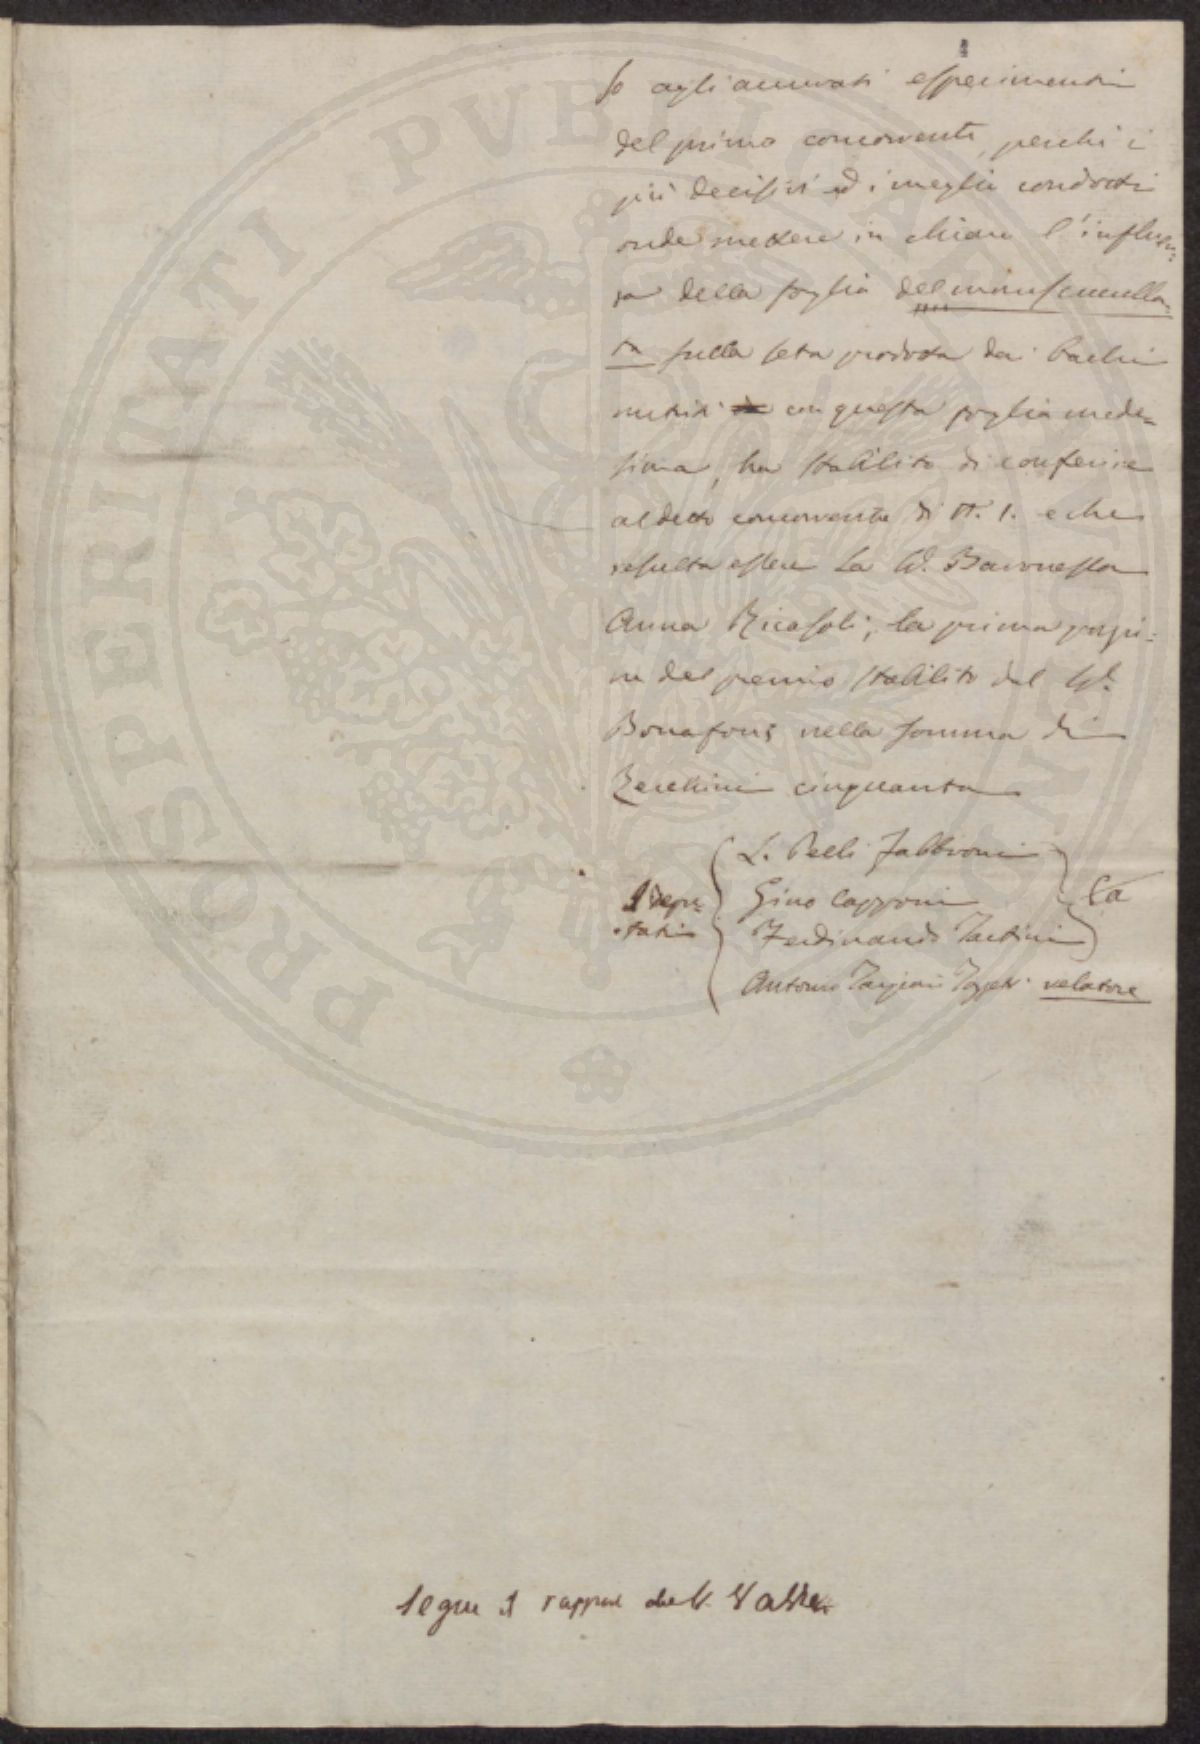 4
so agli accurati esperimenti
del primo concorrente, perchè i
più decisivi ed i meglio condotti
onde mettere in chiaro l'influen=
za della foglia del morus cuculla=
ta sulla seta prodotta dai bachi
nutriti con questa foglia mede=
sima, ha stabilito di conferire
al detto concorrente di N. 1. e che
resulta essere La Sig.ª Baronessa
Anna Ricasoli, la prima porzio=
ne del premio stabilito dal Sig.
Bonafous nella somma di
Zecchini cinquanta
I depu=
tati
L. Pelli Fabbroni
Gino Capponi
Ferdinando Tartini
Antonio Targioni Tozzetti relatore
segue il rappor
PROSPERITATI PVBLICAE AVGENDAE